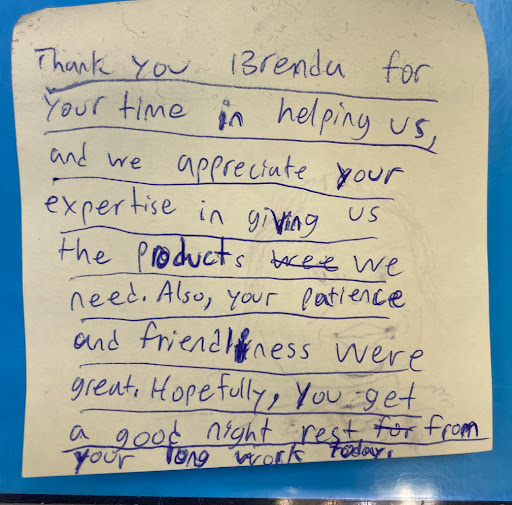 Thank you Brenda for
your time in helping us,
and we appreciate your
expertise in giving us
the products wee we
need. Also, your patience
and friendliness were
great. Hopefully, you get
a good night rest for from
your long work today.